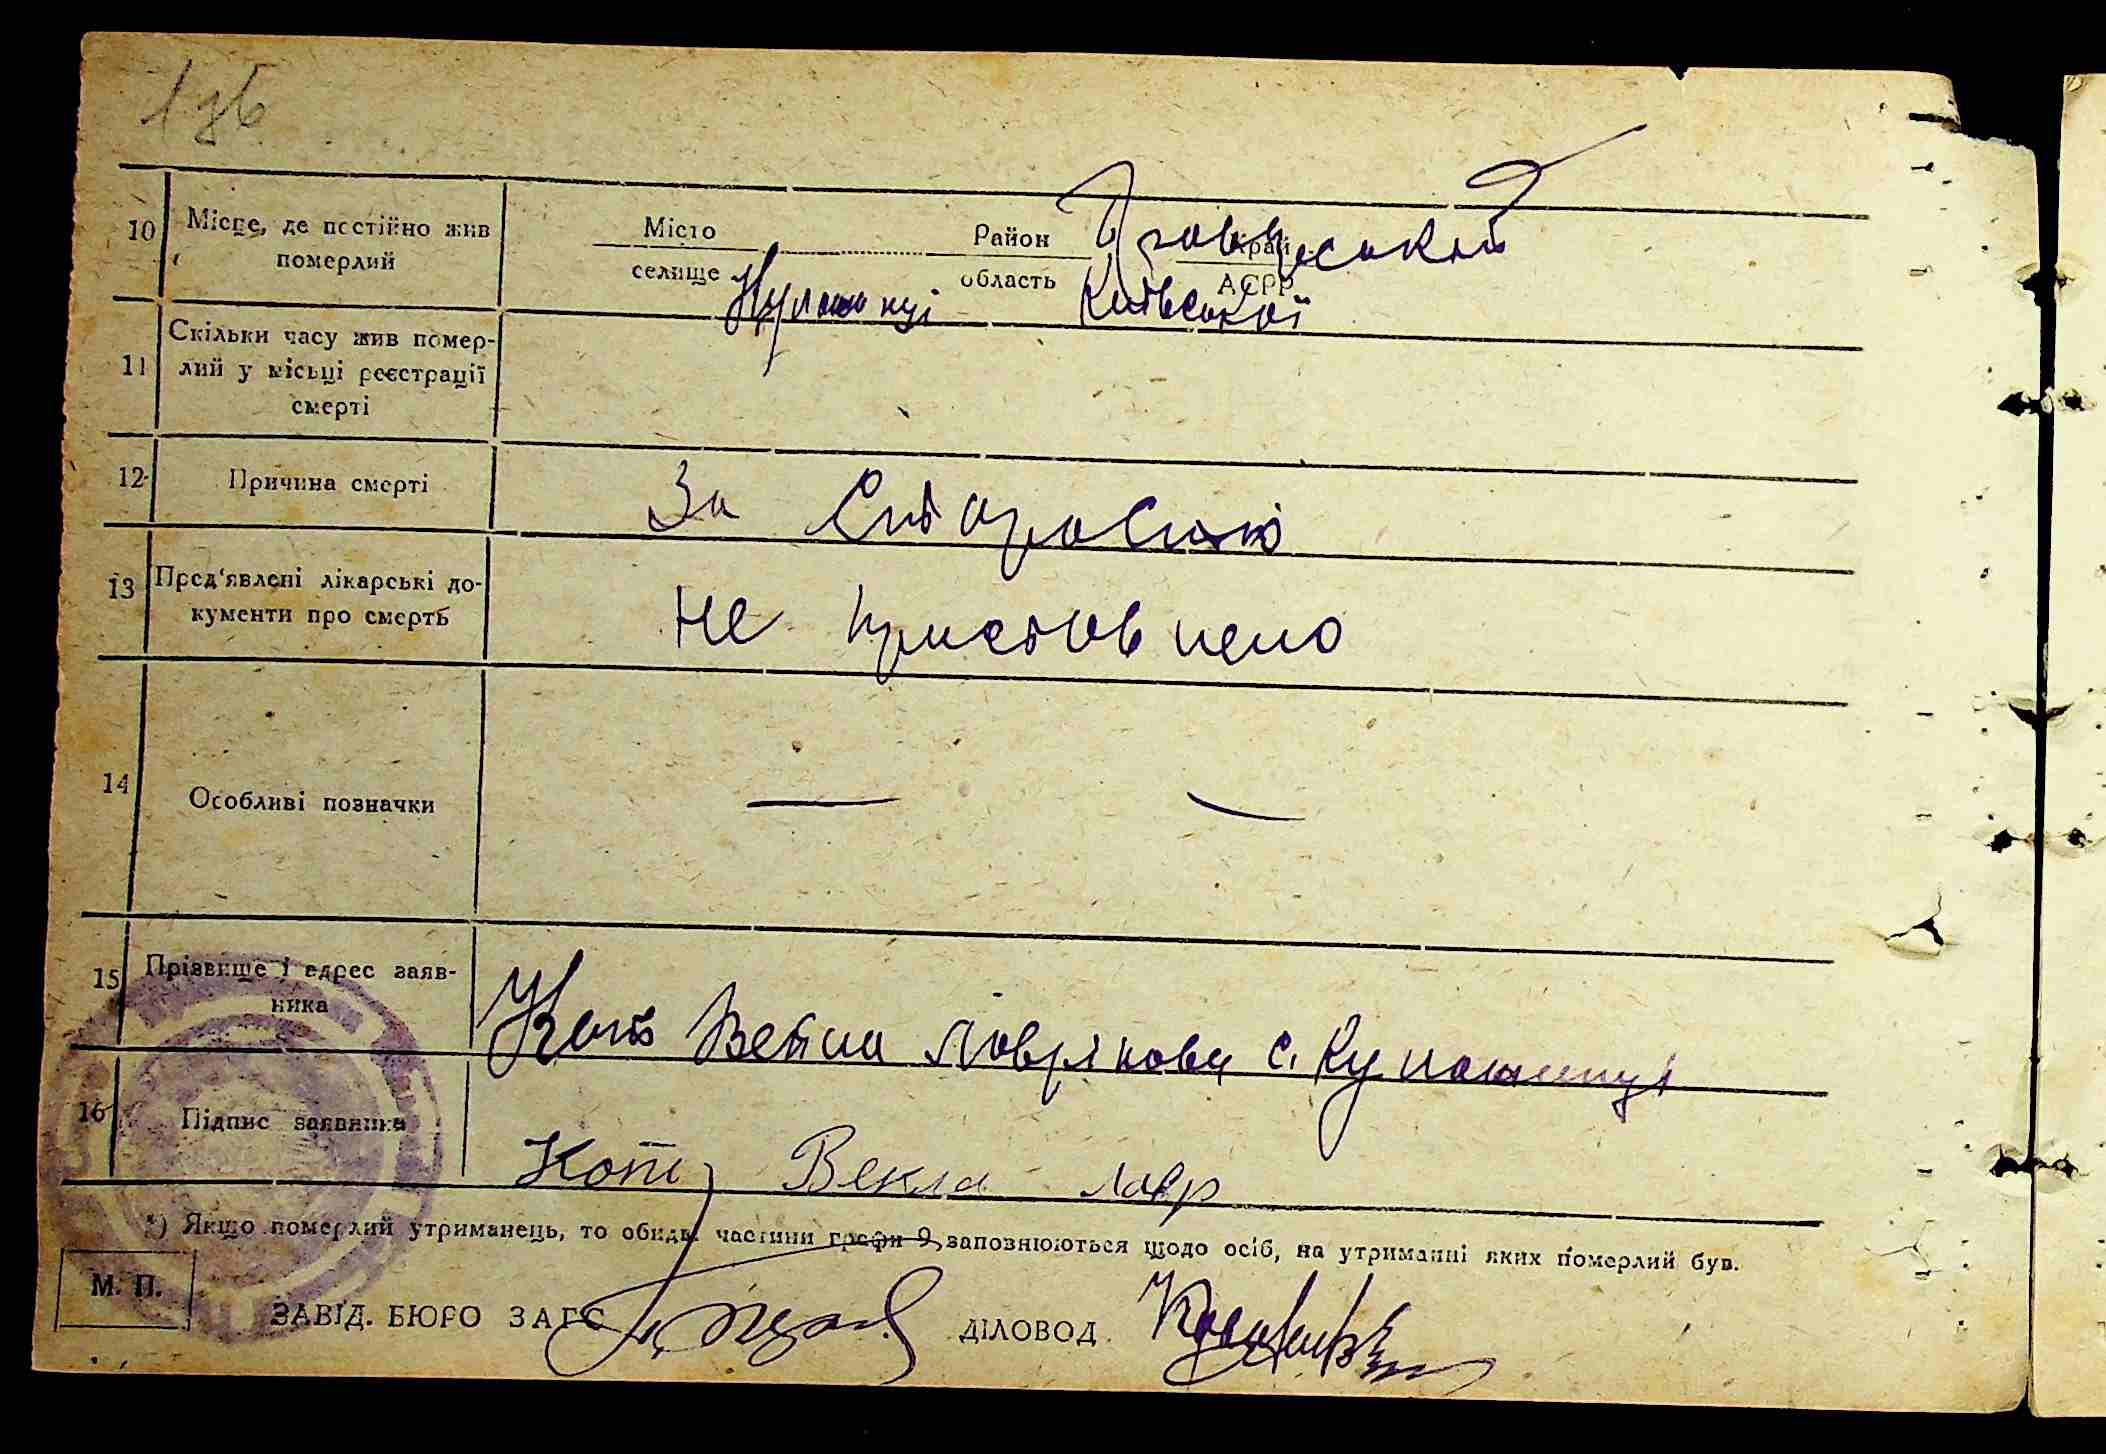 186
10 Місце, де постійно жив померлий
Місто селище Кулешинці Район область Київської Край АСРР
11 Скільки часу жив помер-
лий у місці реєстрації
смерті
12 Причина смерті За Старостю
13 Пред'явлені лікарські до-
кументи про смерть
Не приставлено
14 Особливі позначки — —
15 Прізвище і адрес заяв-
ника
Кот Векла Лаврінова с.
16 Підпис заявника Кот Векла Лавр
*) Якщо померлий утриманець, то обидві частини графи 9 заповнюються щодо осіб, на утриманні яких померлий був.
М. П.
ЗАВІД. БЮРО ЗАГС ДІЛОВОД